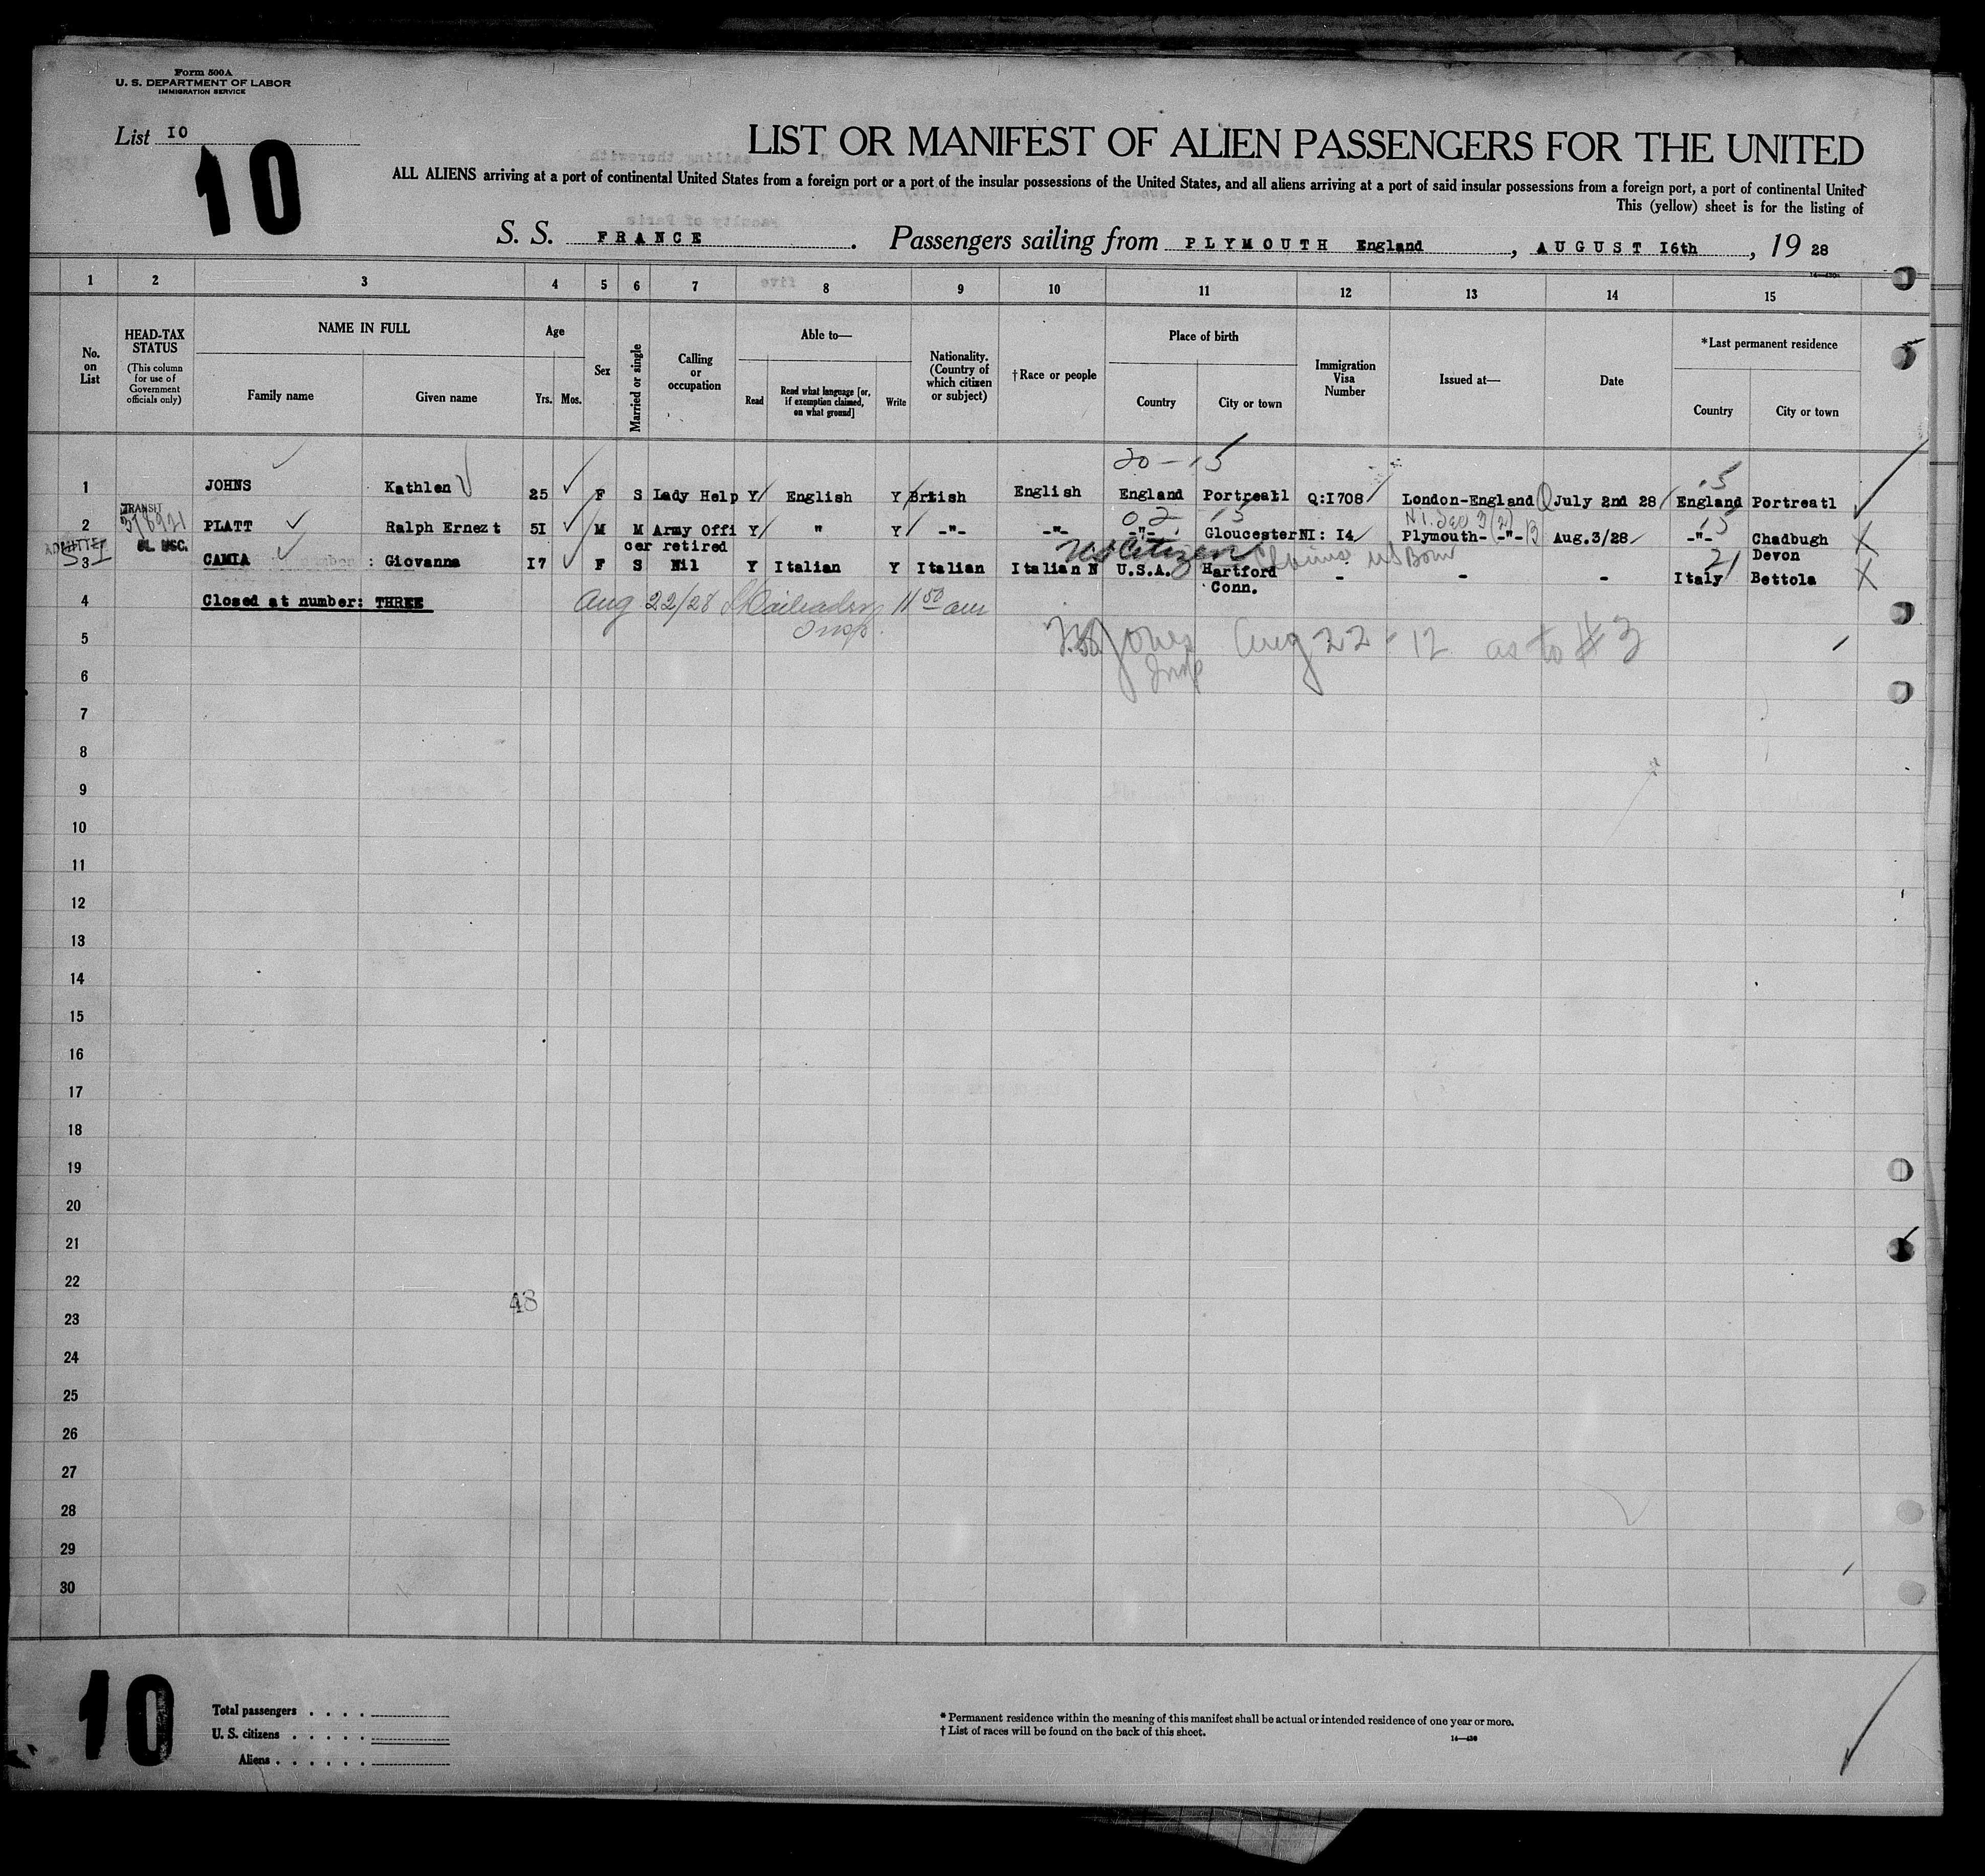 Form 500A
U. S. DEPARTMENT OF LABOR
IMMIGRATION SERVICE
List 10
10
LIST OR MANIFEST OF ALIEN PASSENGERS FOR THE UNITED
ALL ALIENS arriving at a port of continental United States from a foreign port or a port of the insular possessions of the United States, and all aliens arriving at a port of said insular possessions from a foreign port, a port of continental United
This (yellow) sheet is for the listing of
S. S. FRANCE. Passengers sailing from PLYMOUTH England, AUGUST I6th, 19 28
1 2 3 4 5 6 7 8 9 10 11 12 13 14 15
No. on List
HEAD-TAX STATUS (This column for use of Government officials only)
NAME IN FULL
Family name Given name
Age
Yrs. Mos.
Sex
Married or single
Calling or occupation
Able to—
Read Read what language [or, if exemption claimed, on what ground] Write
Nationality. (Country of which citizen or subject)
†Race or people
Place of birth
Country City or town
Immigration Visa Number
Issued at—
Date
*Last permanent residence
Country City or town
20-15
15
1 JOHNS Kathlen 25 F S Lady Help Y English Y Brtish English England Portreatl Q:I708 London-England July 2nd 28 England Portreatl
TRANSIT
02 15 15
2 PLATT Ralph Ernezt 5I M M Army Offi Y " Y -"- -"- -"- Gloucester NI: I4 Plymouth- -"- Aug.3/28 -"- Chadbugh
cer retired Devon
ADMITTED
US Citizen US Born 21
3 CAMIA : Giovanna I7 F S Nil Y Italian Y Italian Italian N U.S.A. Hartford - - - Italy Bettola
Conn.
4 Closed at number: THREE Aug 22/28 11 50 am
Insp.
5 Jones Aug 22 - 12 as to #3
Insp
6
7
8
9
10
11
12
13
14
15
16
17
18
19
20
21
22
48
23
24
25
26
27
28
29
30
10
Total passengers . . . .
U. S. citizens . . . . .
Aliens . . . . . .
* Permanent residence within the meaning of this manifest shall be actual or intended residence of one year or more.
† List of races will be found on the back of this sheet.